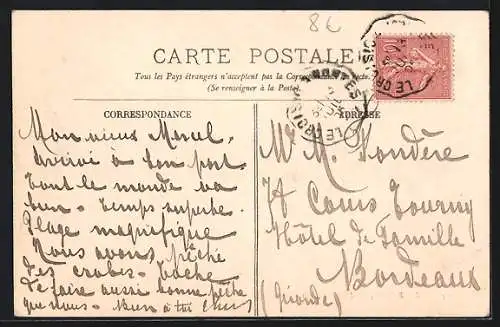 8C
CARTE POSTALE
Tous les Pays étrangers n'acceptent pas la Correspondance
(Se renseigner à la Poste).
CORRESPONDANCE
Mon vieux Marcel.
Arrivé à bon port.
Tout le monde va
bien. Temps superbe.
Plage magnifique
Nous avons pêché
des crabes. Tâche
de faire aussi bonne pêche
que nous. Bien à toi
ADRESSE
Mr M. Fondère
74 Cours Tourny
Hôtel de Famille
Bordeaux
(Gironde)
LE CROISIC
10
LE CROISIC A NANTES